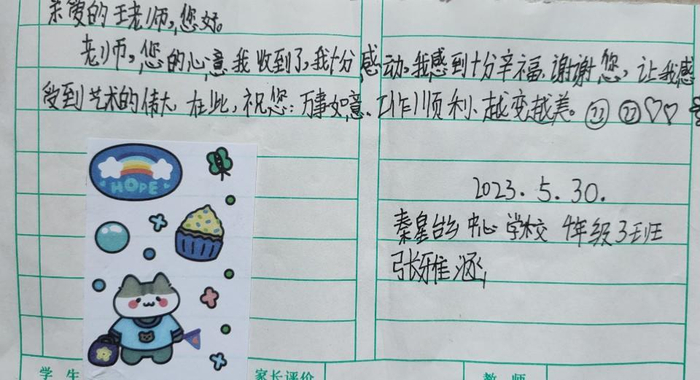 亲爱的王老师,您好。
老师,您的心意我收到了,我十分感动。我感到十分幸福,谢谢您,让我感
受到艺术的伟大。在此,祝您:万事如意、工作顺利、越变越美。
HOPE
2023.5.30.
秦皇台乡中心学校 4年级3班
张雅涵
学生
家长评价
教师